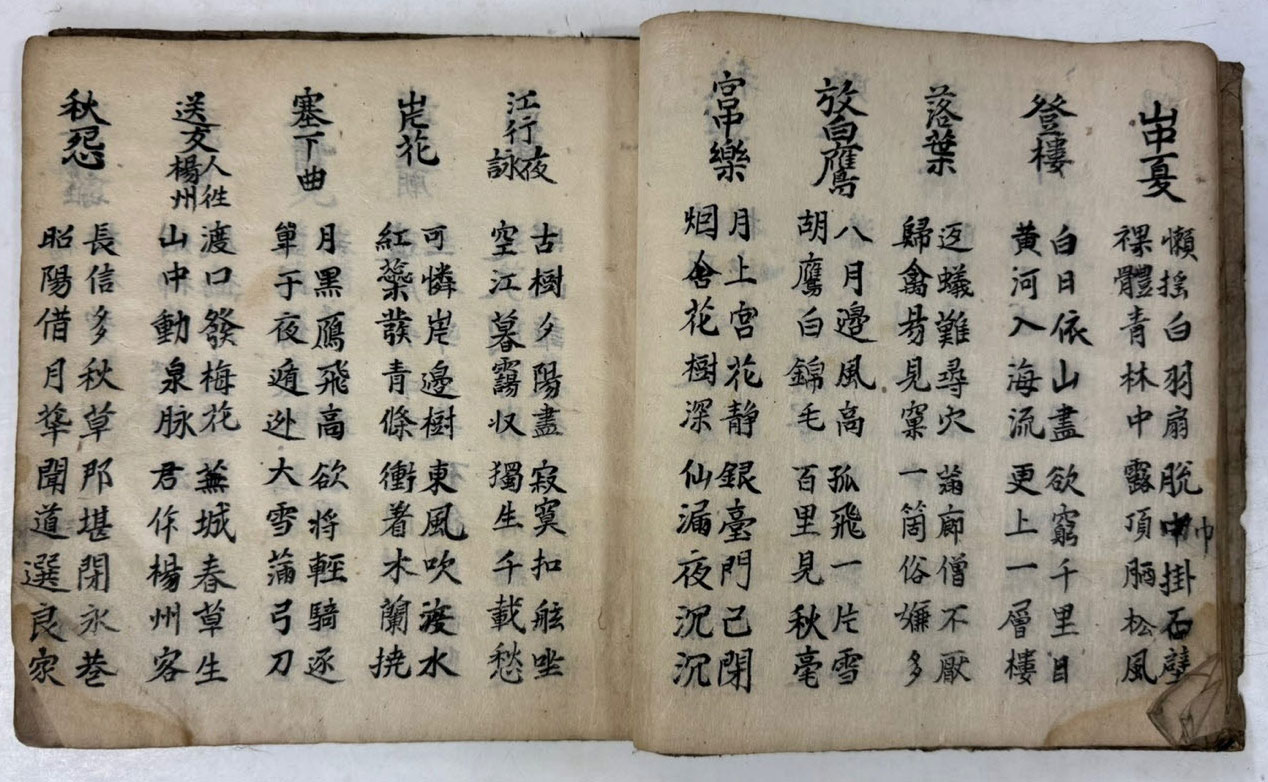 山中夏
懶搖白羽扇脫巾掛石壁
裸體青林中露頂洒松風
登樓
白日依山盡欲窮千里目
黃河入海流更上一層樓
落葉
返蟻難尋穴滿廊僧不厭
歸禽易見窠一箇俗嫌多
放白鷹
八月邊風高孤飛一片雪
胡鷹白錦毛百里見秋毫
宮中樂
月上宮花静銀臺門已閉
烟含花樹深仙漏夜沉沉
江行夜詠
古樹夕陽盡寂寞扣舷坐
空江暮靄收獨生千載愁
岸花
可憐岸邊樹東風吹渡水
紅蘂發青條衝着木蘭撓
塞下曲
月黑鴈飛高欲將輕騎逐
單于夜遁逃大雪滿弓刀
送友人往楊州
渡口發梅花蕪城春草生
山中動泉脉君作楊州客
秋怨
長信多秋草那堪閉永巷
昭陽借月華聞道選良家